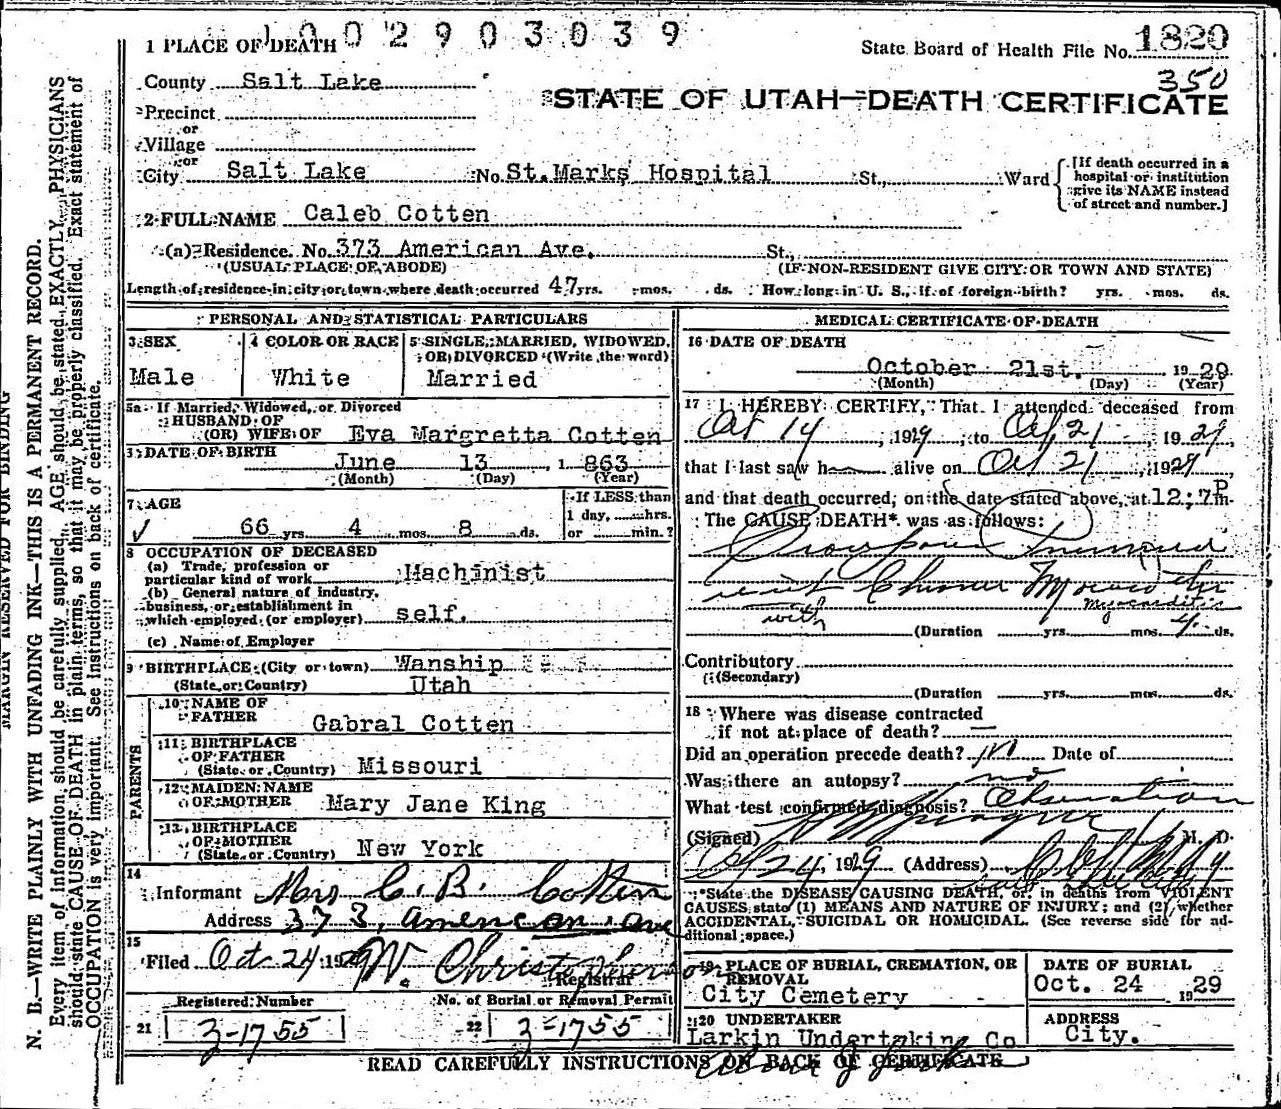 1 0 0 2 9 0 3 0 3 9
1 PLACE OF DEATH
State Board of Health File No. 1820
350
County Salt Lake
STATE OF UTAH—DEATH CERTIFICATE
Precinct
or
Village
or
City Salt Lake No. St. Marks Hospital St., Ward
[If death occurred in a hospital or institution give its NAME instead of street and number.]
2 FULL NAME Caleb Cotten
(a) Residence. No. 373 American Ave. St.,
(USUAL PLACE OF ABODE) (IF NON-RESIDENT GIVE CITY OR TOWN AND STATE)
Length of residence in city or town where death occurred 47 yrs. mos. ds. How long in U. S., if of foreign birth? yrs. mos. ds.
PERSONAL AND STATISTICAL PARTICULARS
3 SEX
Male
4 COLOR OR RACE
White
5 SINGLE, MARRIED, WIDOWED, OR DIVORCED (Write the word)
Married
5a If Married, Widowed, or Divorced
HUSBAND OF
(OR) WIFE OF Eva Margretta Cotten
DATE OF BIRTH
June 13, 1863
(Month) (Day) (Year)
7 AGE
66 yrs. 4 mos. 8 ds.
If LESS than
1 day, hrs.
or min.?
8 OCCUPATION OF DECEASED
(a) Trade, profession or
particular kind of work Machinist
(b) General nature of industry,
business, or establishment in
which employed (or employer) self.
(c) Name of Employer
9 BIRTHPLACE (City or town) Wanship
(State or Country) Utah
PARENTS
10 NAME OF
FATHER Gabral Cotten
11 BIRTHPLACE
OF FATHER
(State or Country) Missouri
12 MAIDEN NAME
OF MOTHER Mary Jane King
13 BIRTHPLACE
OF MOTHER
(State or Country) New York
14
Informant Mrs C. B. Cotten
Address 373, American ave
15
Filed Oct 24 1929 W. Christopherson
Registrar
Registered Number
21 3-1755
No. of Burial or Removal Permit
22 3-1755
MEDICAL CERTIFICATE OF DEATH
16 DATE OF DEATH
October 21st. 1929
(Month) (Day) (Year)
17 I HEREBY CERTIFY, That I attended deceased from
Oct 14, 1929, to Oct 21, 1929,
that I last saw h alive on Oct 21, 1929
and that death occurred, on the date stated above, at 12;7 P m.
The CAUSE DEATH* was as follows:
Pneumonia
Chronic Myocarditis
with Myocarditis
(Duration yrs. mos. ds.
Contributory
(Secondary)
(Duration yrs. mos. ds.
18 Where was disease contracted
if not at place of death? —
Did an operation precede death? no Date of
Was there an autopsy? no
What test confirmed diagnosis? Observation
(Signed) M. D.
Oct 24, 1929 (Address)
*State the DISEASE CAUSING DEATH, or, in deaths from VIOLENT
CAUSES, state (1) MEANS AND NATURE OF INJURY; and (2) whether
ACCIDENTAL, SUICIDAL OR HOMICIDAL. (See reverse side for ad-
ditional space.)
19 PLACE OF BURIAL, CREMATION, OR
REMOVAL
City Cemetery
DATE OF BURIAL
Oct. 24 1929
20 UNDERTAKER
Larkin Undertaking Co
ADDRESS
City.
READ CAREFULLY INSTRUCTIONS ON BACK OF CERTIFICATE
MARGIN RESERVED FOR BINDING
N. B.—WRITE PLAINLY WITH UNFADING INK—THIS IS A PERMANENT RECORD.
Every item of information should be carefully supplied. AGE should be stated EXACTLY. PHYSICIANS
should state CAUSE OF DEATH in plain terms, so that it may be properly classified. Exact statement of
OCCUPATION is very important. See instructions on back of certificate.